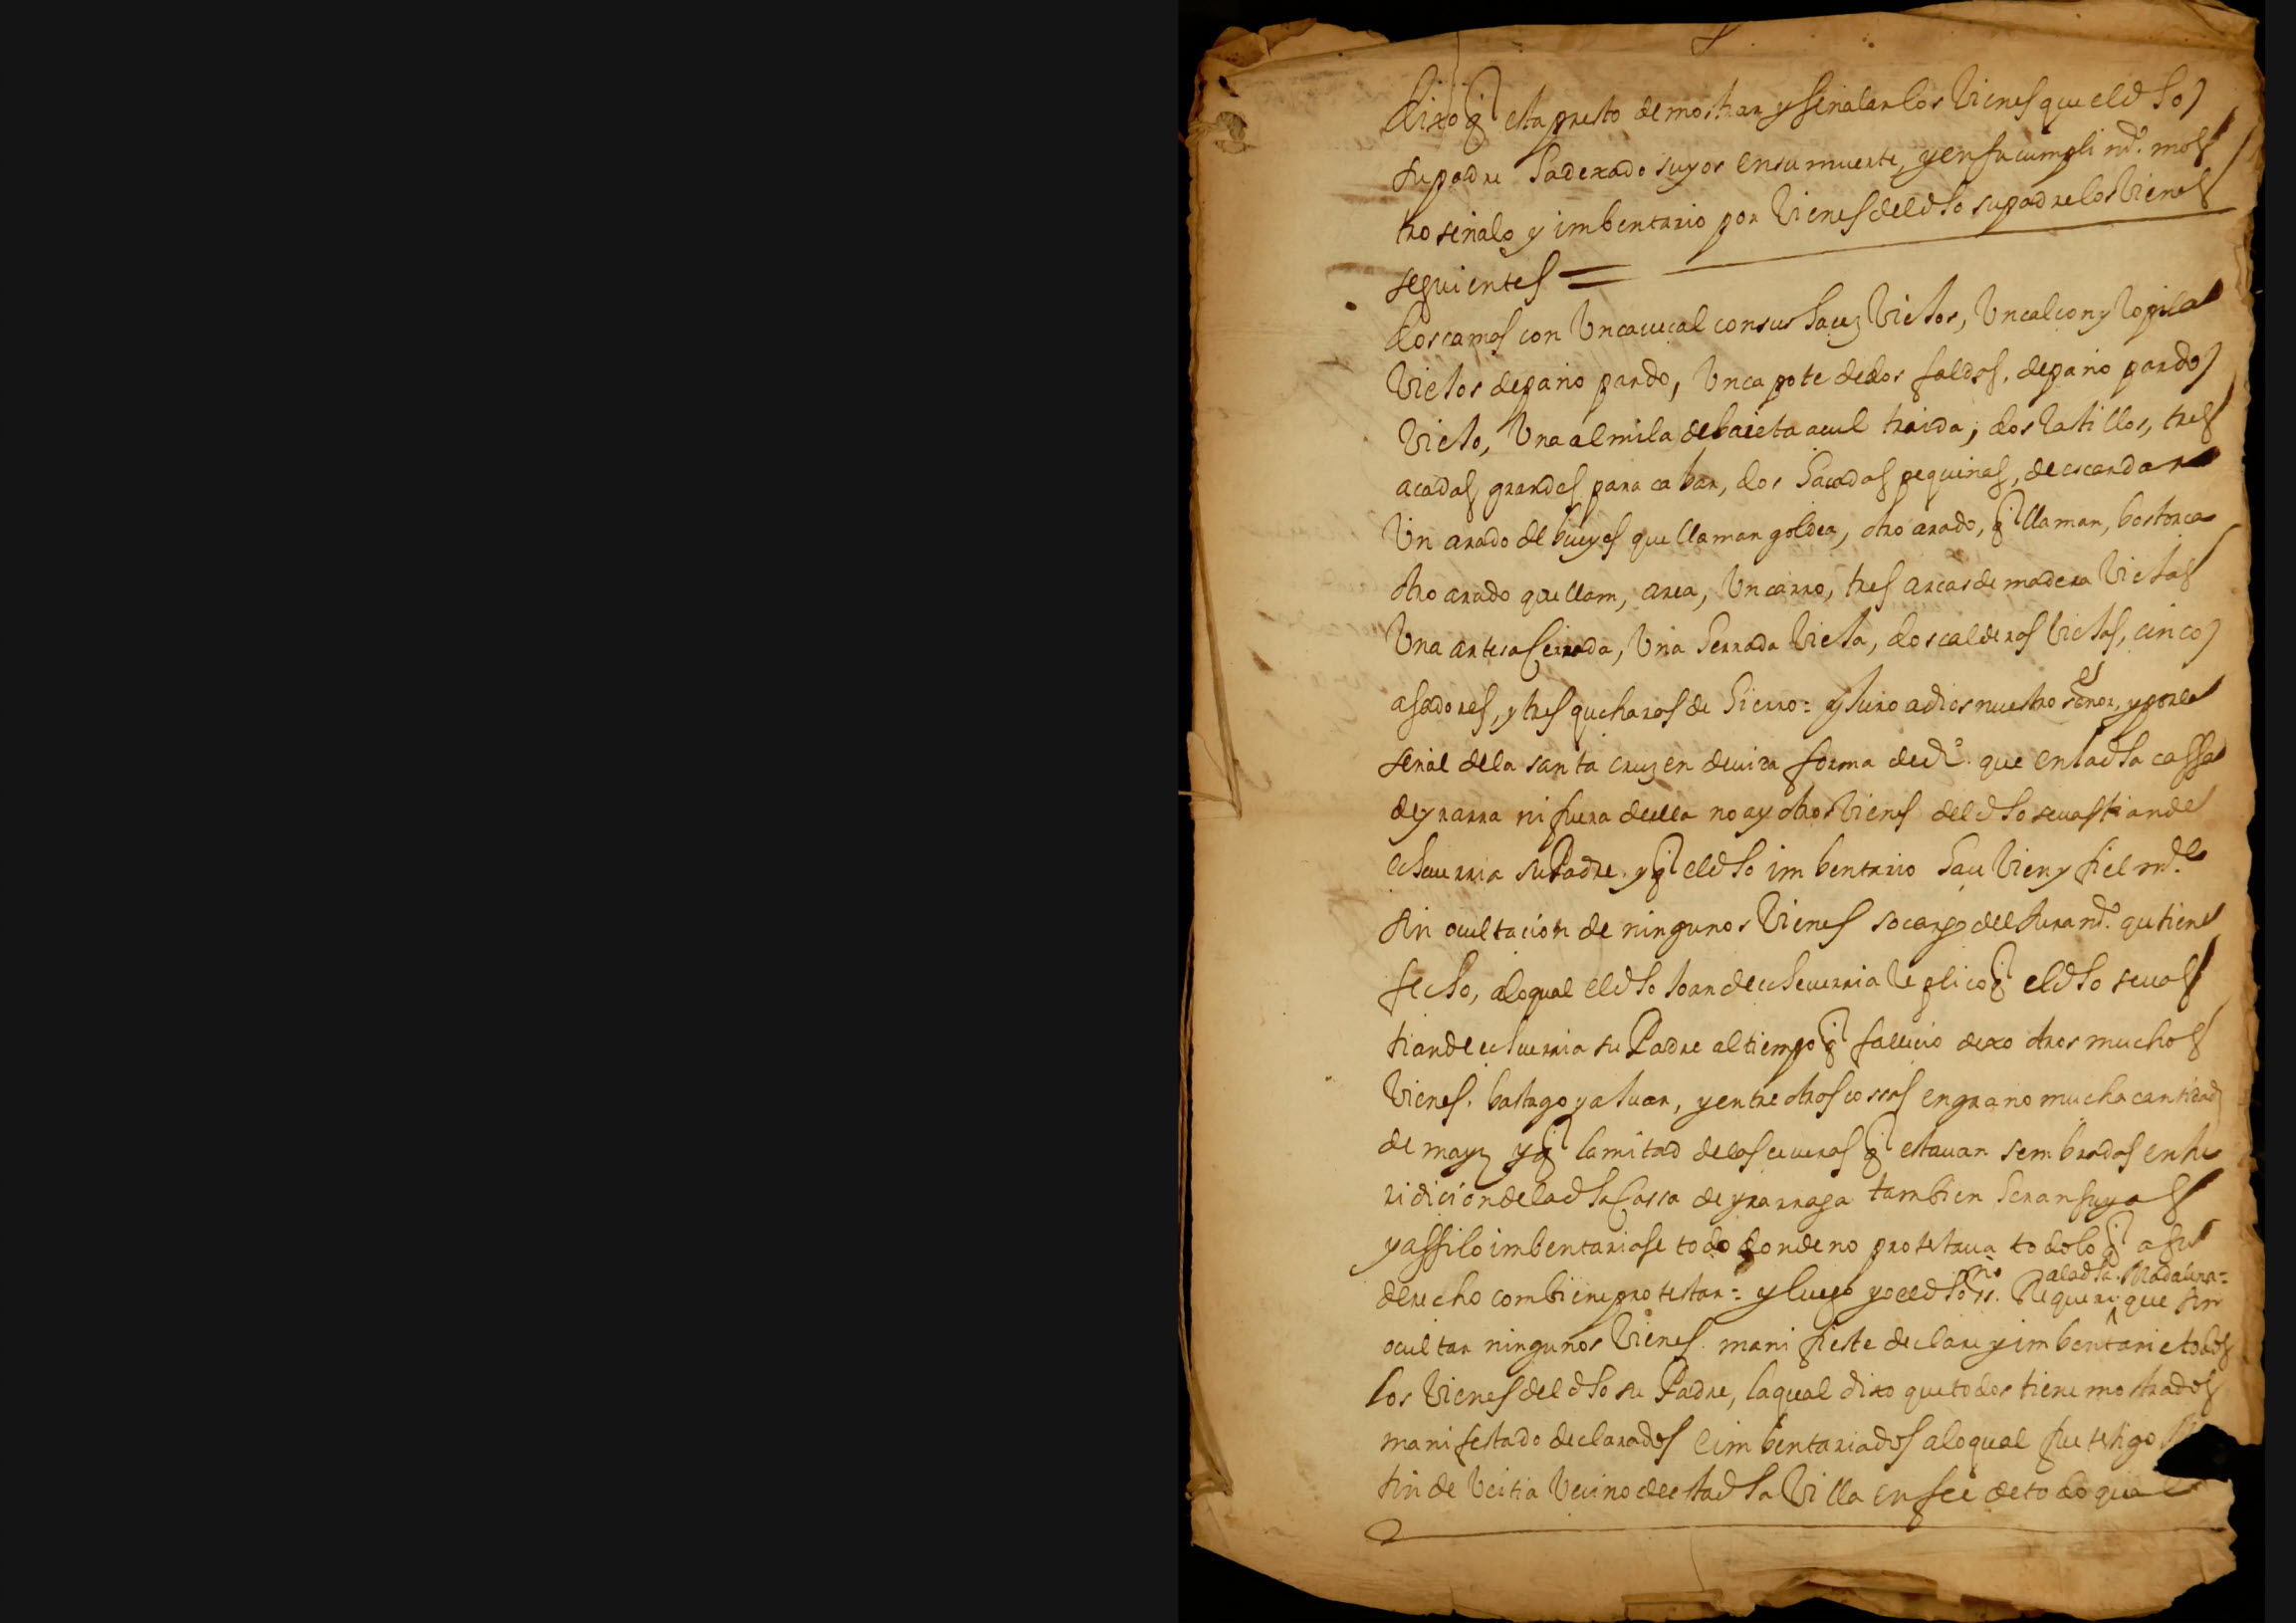 dixo q̃ esta presto de mostrar y señalar los vienes que el dho
su padre ha dexado suyos en su muerte, y en su cumplimᵗᵒ. mos
tro señalo y imbentario por vienes del dho su padre los vienes
seguientes =
dos camas con un cavecal con sus haces viejos, un calcon y ropilla
viejos de paño pardo, un capote de dos faldas, de paño pardo
viejo, una almila de baieta açul traida, dos rastillos, tres
açadas grandes para cabar, dos haçadas pequeñas, de escardar
un arado de bueyes que llaman goldea, otro arado, q̃ llaman, bostorca
otro arado que llam, area, un carro, tres arcas de madera viejas
una artesa Cerrada, una herrada vieja, dos calderas viejas, cinco
asadores, y tres qucharas de hierro: y juro a dios nuestro señor, y por la
señal de la santa cruz en devida forma de drᵒ. que en la dha cassa
de yrarra ni fuera de ella no ay otros vienes del dho sevastian de
echeverria su Padre, y q̃ el dho imbentario haze vien y fielmᵗᵉ
sin ocultacion de ningunos vienes so cargo del juramᵗᵒ. que tiene
fecho, a lo qual el dho Joan de echeverria replico q̃ el dho sevas
tian de echeverria su Padre al tiempo q̃ fallecio dexo otros muchos
vienes. bastago y ajuar, y entre otras cossas en grano mucha cantidad
de mayz y q̃ la mitad de las ceveras q̃ estavan sembradas en he
ridicion de la dha Cassa de yrarraga tambien heran suyas
y assi lo imbentariase todo donde no protestava todo lo q̃ a su
derecho combiene protestar: y luego yo el dho ssⁿᵒ. Requeri a la dha Madalena que sin
ocultar ningunos vienes manifieste declare y imbentarie todos
los vienes del dho su Padre, la qual dixo que todos tiene mostrados
manifestado declarados e imbentariados a lo qual fue testigo
tin de Veitia vecino de esta dha Villa en fee de todo lo qual